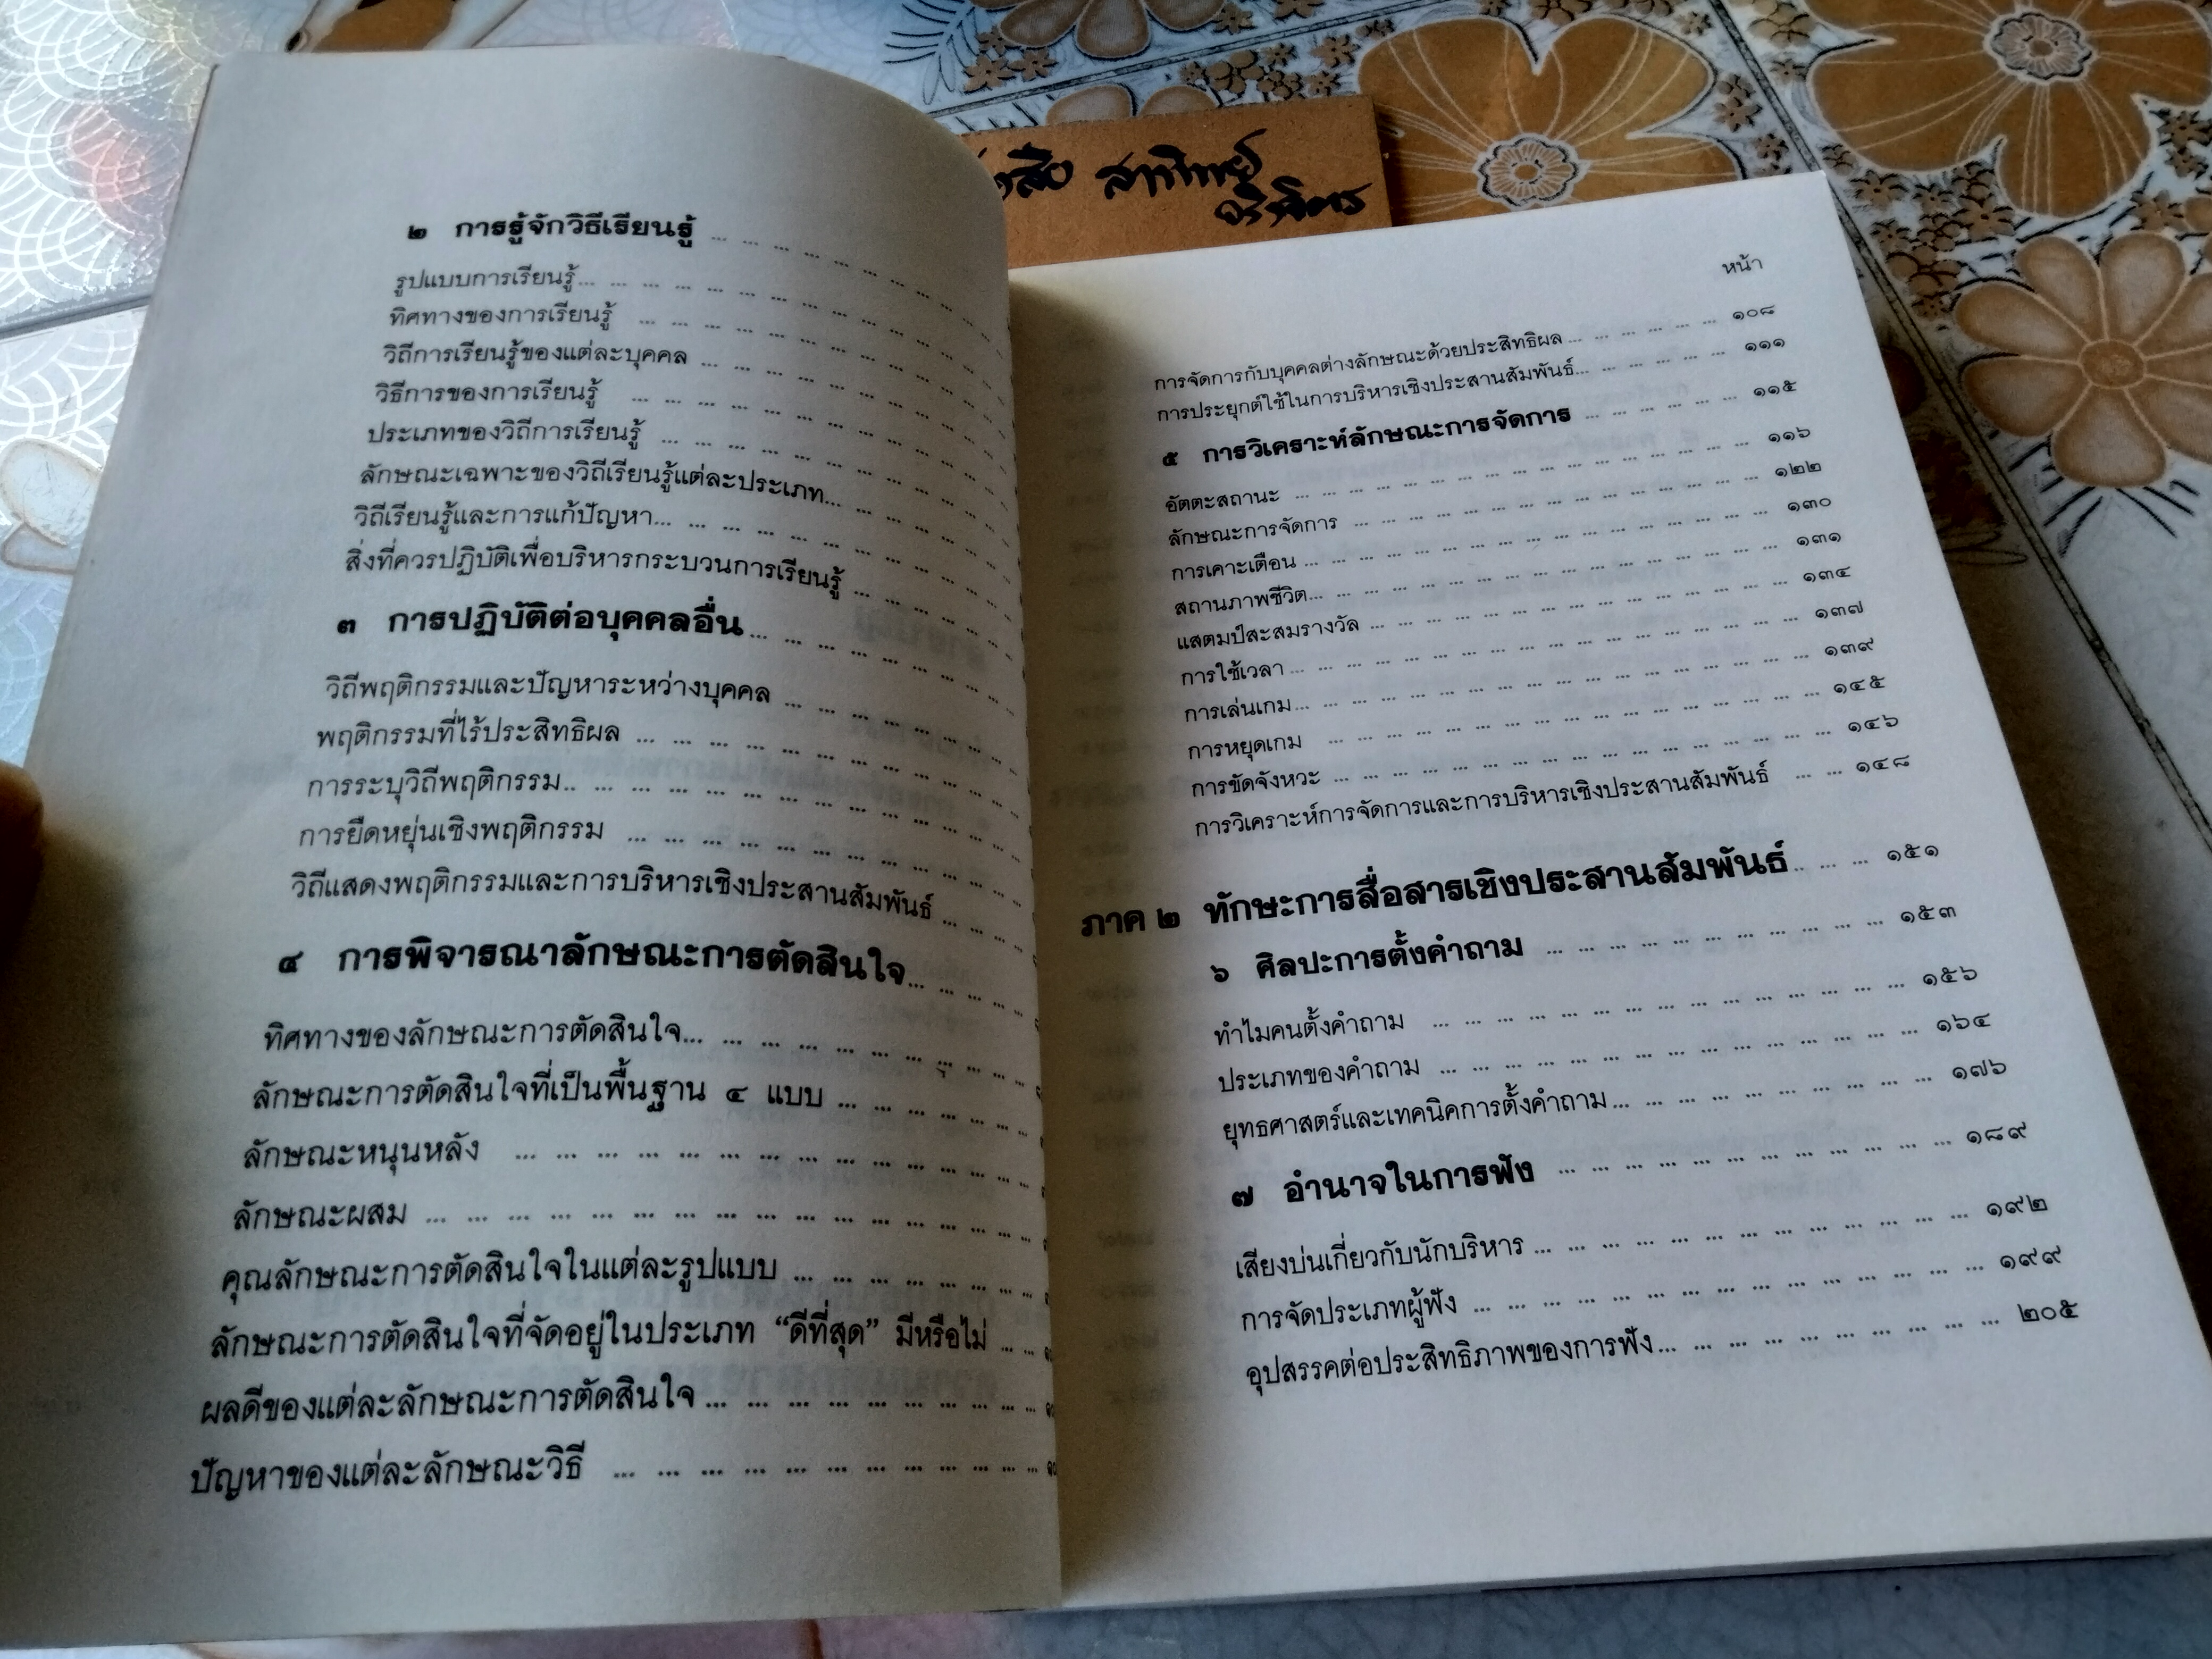 ๒ การรู้จักวิธีเรียนรู้ ... ... ... ... ... ... ... ... ...
รูปแบบการเรียนรู้... ... ... ... ... ... ... ... ... ... ... ...
ทิศทางของการเรียนรู้ ... ... ... ... ... ... ... ... ... ... ...
วิถีการเรียนรู้ของแต่ละบุคคล ... ... ... ... ... ... ... ... ...
วิธีการของการเรียนรู้ ... ... ... ... ... ... ... ... ... ... ...
ประเภทของวิถีการเรียนรู้ ... ... ... ... ... ... ... ... ... ...
ลักษณะเฉพาะของวิถีเรียนรู้แต่ละประเภท... ... ... ... ...
วิถีเรียนรู้และการแก้ปัญหา... ... ... ... ... ... ... ... ... ...
สิ่งที่ควรปฏิบัติเพื่อบริหารกระบวนการเรียนรู้ ... ... ... ... ...
๓ การปฏิบัติต่อบุคคลอื่น... ... ... ... ... ... ... ... ...
วิถีพฤติกรรมและปัญหาระหว่างบุคคล ... ... ... ... ... ... ...
พฤติกรรมที่ไร้ประสิทธิผล ... ... ... ... ... ... ... ... ... ...
การระบุวิถีพฤติกรรม... ... ... ... ... ... ... ... ... ... ... ...
การยืดหยุ่นเชิงพฤติกรรม ... ... ... ... ... ... ... ... ... ...
วิถีแสดงพฤติกรรมและการบริหารเชิงประสานสัมพันธ์ ... ... ...
๔ การพิจารณาลักษณะการตัดสินใจ... ... ... ...
ทิศทางของลักษณะการตัดสินใจ... ... ... ... ... ... ... ... ...
ลักษณะการตัดสินใจที่เป็นพื้นฐาน ๔ แบบ ... ... ... ... ... ...
ลักษณะหนุนหลัง ... ... ... ... ... ... ... ... ... ... ... ... ...
ลักษณะผสม ... ... ... ... ... ... ... ... ... ... ... ... ... ... ...
คุณลักษณะการตัดสินใจในแต่ละรูปแบบ ... ... ... ... ... ... ...
ลักษณะการตัดสินใจที่จัดอยู่ในประเภท “ดีที่สุด” มีหรือไม่ ... ...
ผลดีของแต่ละลักษณะการตัดสินใจ ... ... ... ... ... ... ... ... ...
ปัญหาของแต่ละลักษณะวิธี ... ... ... ... ... ... ... ... ... ... ...
สาทิพย์
หน้า
การจัดการกับบุคคลต่างลักษณะด้วยประสิทธิผล ... ... ... ... ... ... ๑๐๘
การประยุกต์ใช้ในการบริหารเชิงประสานสัมพันธ์... ... ... ... ... ... ๑๑๑
๕ การวิเคราะห์ลักษณะการจัดการ ... ... ... ... ... ... ๑๑๕
อัตตะสถานะ ... ... ... ... ... ... ... ... ... ... ... ... ... ... ... ... ... ๑๑๖
ลักษณะการจัดการ ... ... ... ... ... ... ... ... ... ... ... ... ... ... ... ๑๒๒
การเคาะเตือน ... ... ... ... ... ... ... ... ... ... ... ... ... ... ... ... ... ๑๓๐
สถานภาพชีวิต... ... ... ... ... ... ... ... ... ... ... ... ... ... ... ... ... ๑๓๑
แสตมป์สะสมรางวัล ... ... ... ... ... ... ... ... ... ... ... ... ... ... ... ๑๓๔
การใช้เวลา ... ... ... ... ... ... ... ... ... ... ... ... ... ... ... ... ... ... ๑๓๗
การเล่นเกม... ... ... ... ... ... ... ... ... ... ... ... ... ... ... ... ... ... ๑๓๙
การหยุดเกม ... ... ... ... ... ... ... ... ... ... ... ... ... ... ... ... ... ๑๔๕
การขัดจังหวะ ... ... ... ... ... ... ... ... ... ... ... ... ... ... ... ... ... ๑๔๖
การวิเคราะห์การจัดการและการบริหารเชิงประสานสัมพันธ์ ... ... ๑๔๘
ภาค ๒ ทักษะการสื่อสารเชิงประสานสัมพันธ์... ... ... ๑๕๑
๖ ศิลปะการตั้งคำถาม ... ... ... ... ... ... ... ... ... ... ... ๑๕๓
ทำไมคนตั้งคำถาม ... ... ... ... ... ... ... ... ... ... ... ... ... ... ... ๑๕๖
ประเภทของคำถาม ... ... ... ... ... ... ... ... ... ... ... ... ... ... ... ๑๖๔
ยุทธศาสตร์และเทคนิคการตั้งคำถาม... ... ... ... ... ... ... ... ... ... ๑๗๖
๗ อำนาจในการฟัง ... ... ... ... ... ... ... ... ... ... ... ... ๑๘๙
เสียงบ่นเกี่ยวกับนักบริหาร ... ... ... ... ... ... ... ... ... ... ... ... ... ๑๙๒
การจัดประเภทผู้ฟัง ... ... ... ... ... ... ... ... ... ... ... ... ... ... ๑๙๙
อุปสรรคต่อประสิทธิภาพของการฟัง... ... ... ... ... ... ... ... ... ... ๒๐๕